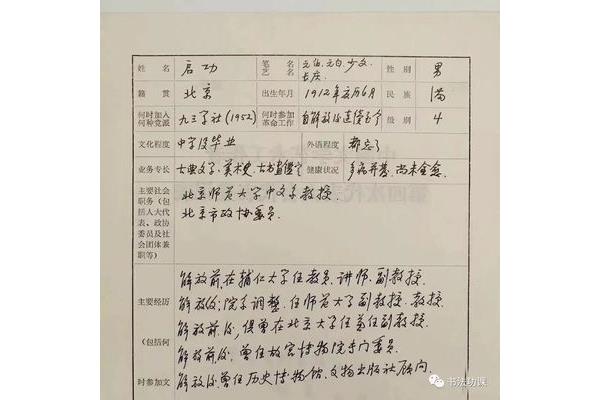 姓 名 启功 笔名艺名 元伯、元白、少文、长庆 性 别 男
籍 贯 北京 出生年月 1912年农历6月 民 族 满
何时加入何种党派 九三学社(1952) 何时参加革命工作 自解放后连续至今 级 别 4
文化程度 中学没毕业 外语程度 都忘了
业务专长 古典文学、美术史、古书画鉴定 健康状况 多病并葠,尚未全愈
主要社会职务(包括人大代表、政协委员及社会团体兼职等) 北京师范大学中文系教授.
北京市政协委员.
主要经历
(包括何
时参加文
解放前在辅仁大学任教员、讲师、副教授.
解放后:院系调整、任师范大学副教授、教授.
解放前后,俱曾在北京大学任兼任副教授.
解放前后:曾任故宫博物院专门委员.
解放后曾任历史博物馆、文物出版社顾问.
书法功课